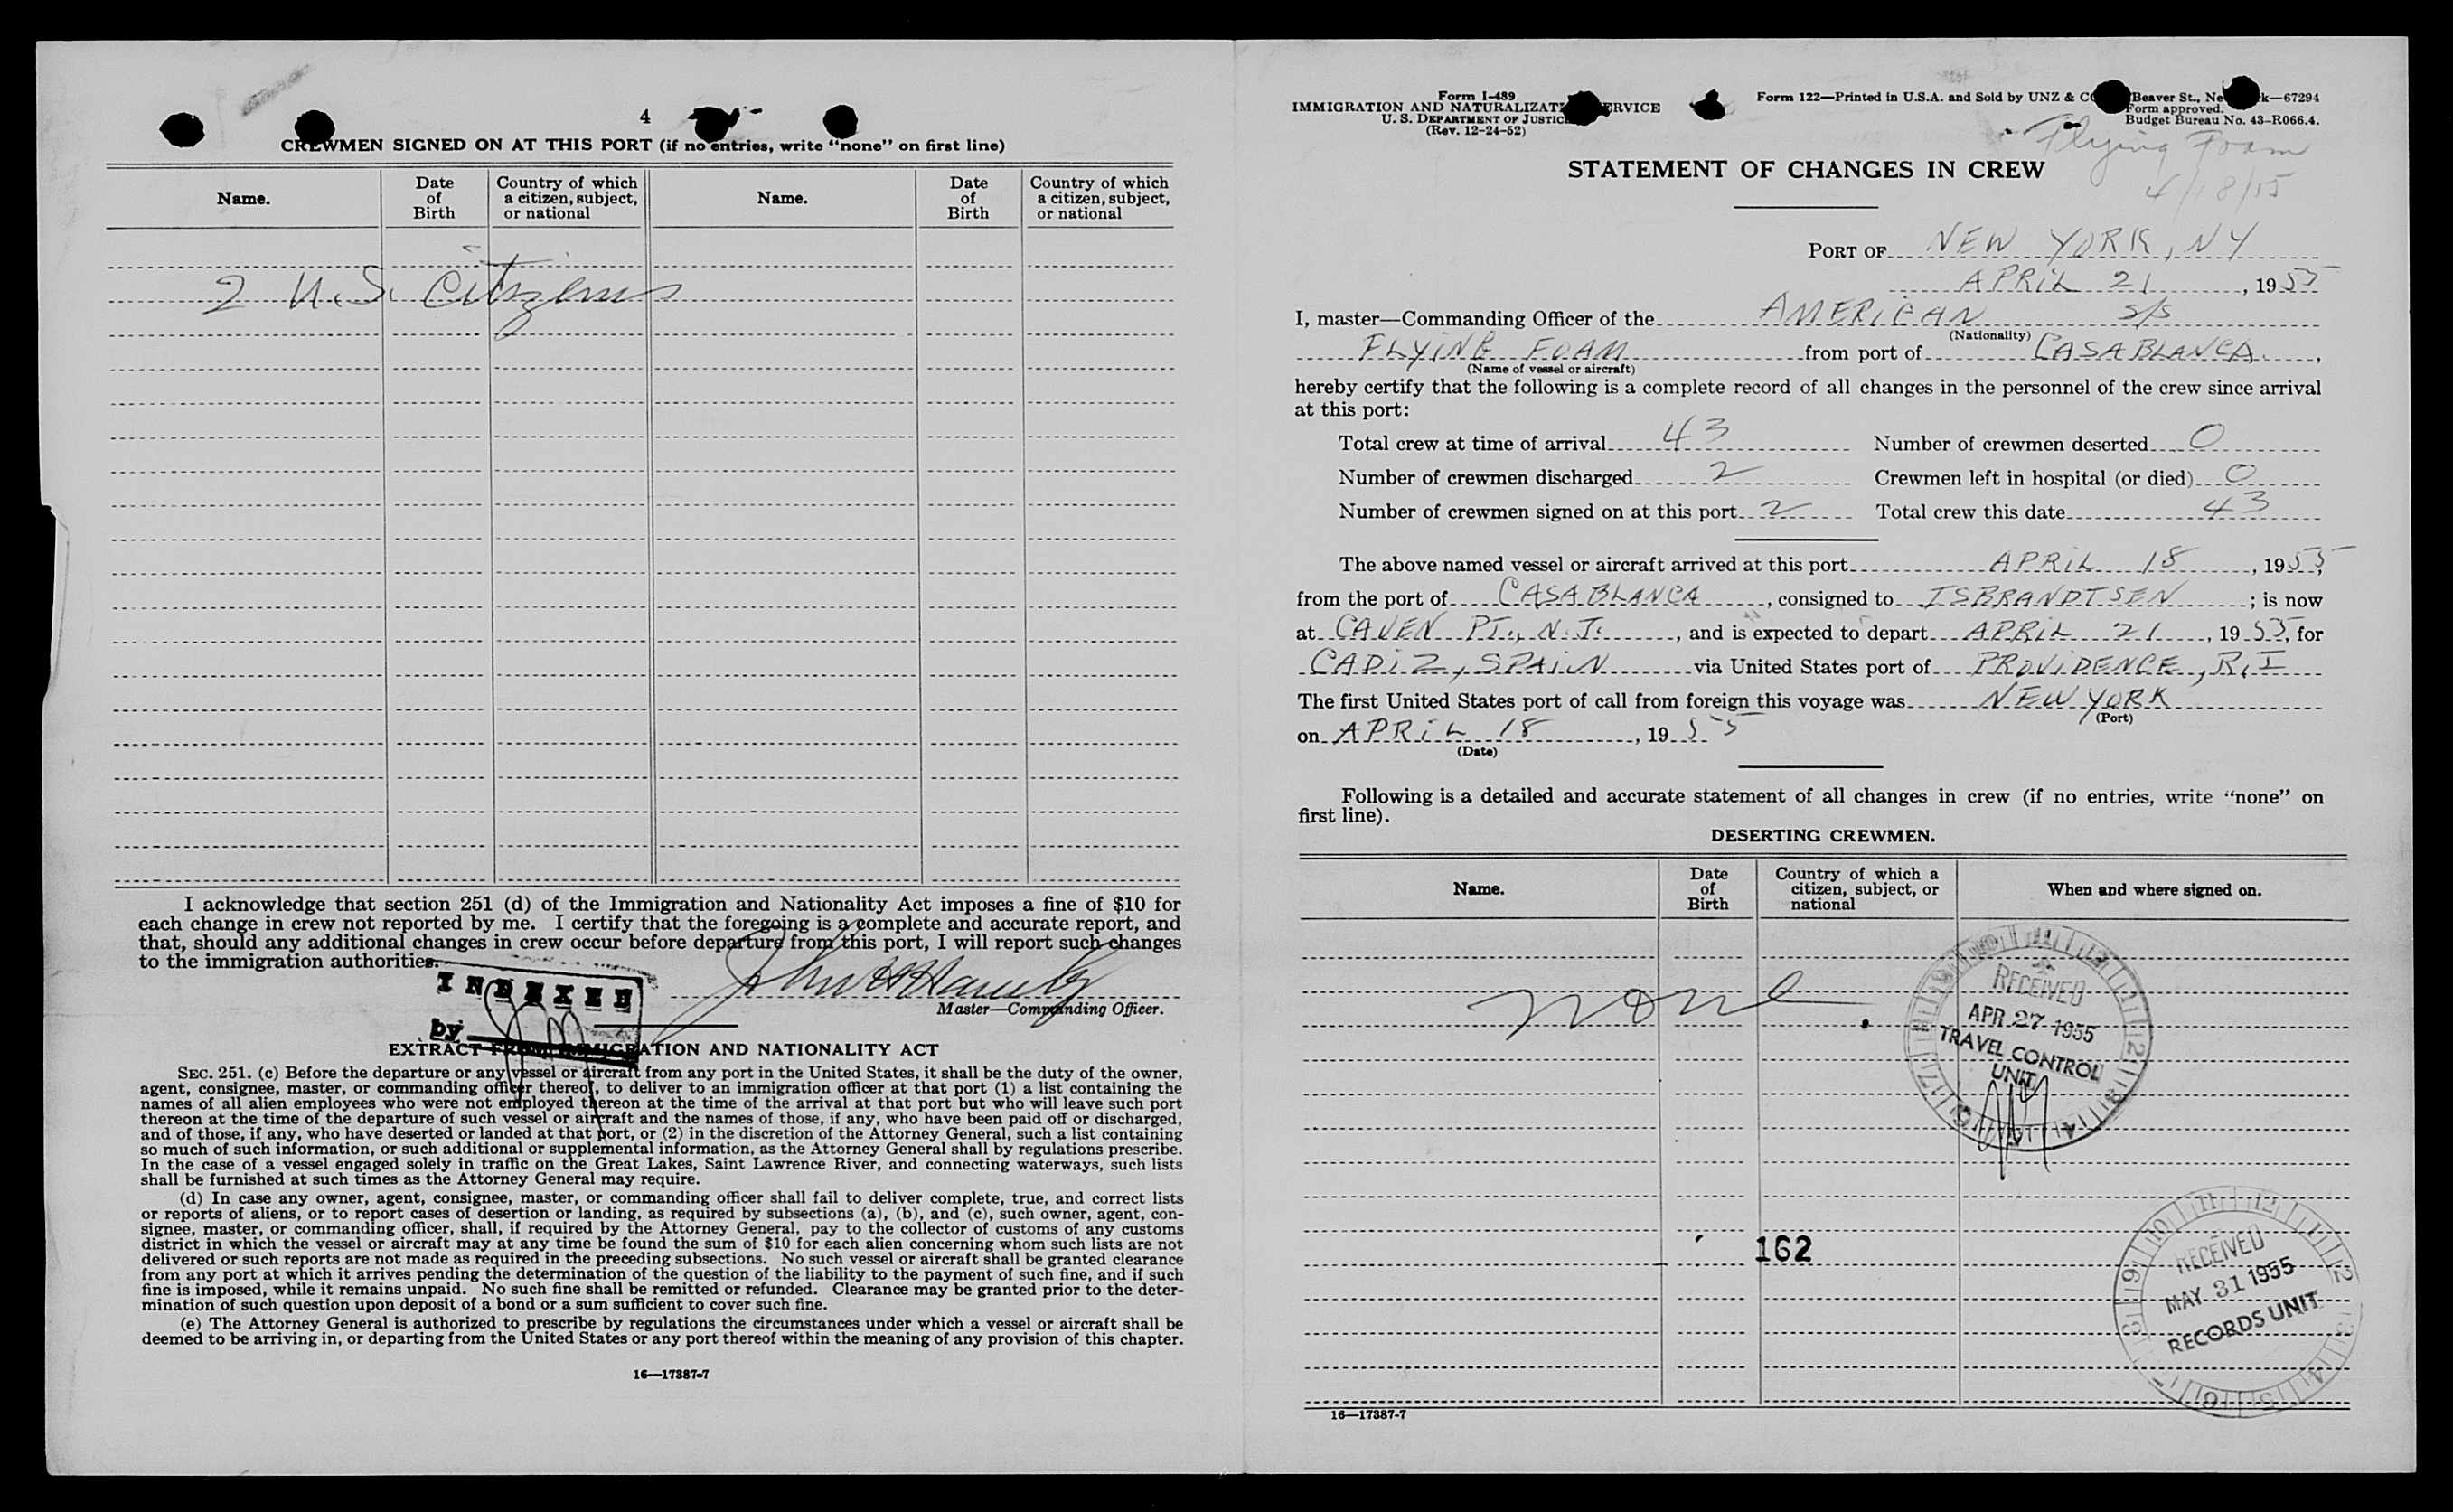 4
CREWMEN SIGNED ON AT THIS PORT (if no entries, write "none" on first line)
Name. Date of Birth Country of which a citizen, subject, or national Name. Date of Birth Country of which a citizen, subject, or national
2 U.S. Citizens
I acknowledge that section 251 (d) of the Immigration and Nationality Act imposes a fine of $10 for
each change in crew not reported by me. I certify that the foregoing is a complete and accurate report, and
that, should any additional changes in crew occur before departure from this port, I will report such changes
to the immigration authorities.
INDEXED
by
Master—Commanding Officer.
EXTRACT FROM IMMIGRATION AND NATIONALITY ACT
SEC. 251. (c) Before the departure or any vessel or aircraft from any port in the United States, it shall be the duty of the owner,
agent, consignee, master, or commanding officer thereof, to deliver to an immigration officer at that port (1) a list containing the
names of all alien employees who were not employed thereon at the time of the arrival at that port but who will leave such port
thereon at the time of the departure of such vessel or aircraft and the names of those, if any, who have been paid off or discharged,
and of those, if any, who have deserted or landed at that port, or (2) in the discretion of the Attorney General, such a list containing
so much of such information, or such additional or supplemental information, as the Attorney General shall by regulations prescribe.
In the case of a vessel engaged solely in traffic on the Great Lakes, Saint Lawrence River, and connecting waterways, such lists
shall be furnished at such times as the Attorney General may require.
(d) In case any owner, agent, consignee, master, or commanding officer shall fail to deliver complete, true, and correct lists
or reports of aliens, or to report cases of desertion or landing, as required by subsections (a), (b), and (c), such owner, agent, con-
signee, master, or commanding officer, shall, if required by the Attorney General, pay to the collector of customs of any customs
district in which the vessel or aircraft may at any time be found the sum of $10 for each alien concerning whom such lists are not
delivered or such reports are not made as required in the preceding subsections. No such vessel or aircraft shall be granted clearance
from any port at which it arrives pending the determination of the question of the liability to the payment of such fine, and if such
fine is imposed, while it remains unpaid. No such fine shall be remitted or refunded. Clearance may be granted prior to the deter-
mination of such question upon deposit of a bond or a sum sufficient to cover such fine.
(e) The Attorney General is authorized to prescribe by regulations the circumstances under which a vessel or aircraft shall be
deemed to be arriving in, or departing from the United States or any port thereof within the meaning of any provision of this chapter.
16—17387-7
Form I-489
IMMIGRATION AND NATURALIZATION SERVICE
U. S. DEPARTMENT OF JUSTICE
(Rev. 12-24-52)
Form 122—Printed in U.S.A. and Sold by UNZ & CO Beaver St., New York—67294
Form approved.
Budget Bureau No. 43-R066.4.
Flying Foam
4/18/55
STATEMENT OF CHANGES IN CREW
PORT OF NEW YORK, NY
APRIL 21, 1955
I, master—Commanding Officer of the AMERICAN S/S
(Nationality)
FLYING FOAM from port of CASABLANCA,
(Name of vessel or aircraft)
hereby certify that the following is a complete record of all changes in the personnel of the crew since arrival
at this port:
Total crew at time of arrival 43 Number of crewmen deserted 0
Number of crewmen discharged 2 Crewmen left in hospital (or died) 0
Number of crewmen signed on at this port 2 Total crew this date 43
The above named vessel or aircraft arrived at this port APRIL 18, 1955,
from the port of CASABLANCA, consigned to ISBRANDTSEN; is now
at CAVEN PT., N.J., and is expected to depart APRIL 21, 1955, for
CADIZ, SPAIN via United States port of PROVIDENCE, R.I
The first United States port of call from foreign this voyage was NEW YORK
(Port)
on APRIL 18, 1955
(Date)
Following is a detailed and accurate statement of all changes in crew (if no entries, write "none" on
first line).
DESERTING CREWMEN.
Name. Date of Birth Country of which a citizen, subject, or national When and where signed on.
none.
RECEIVED
APR 27 1955
TRAVEL CONTROL
UNIT
162
RECEIVED
MAY 31 1955
RECORDS UNIT
16—17387-7